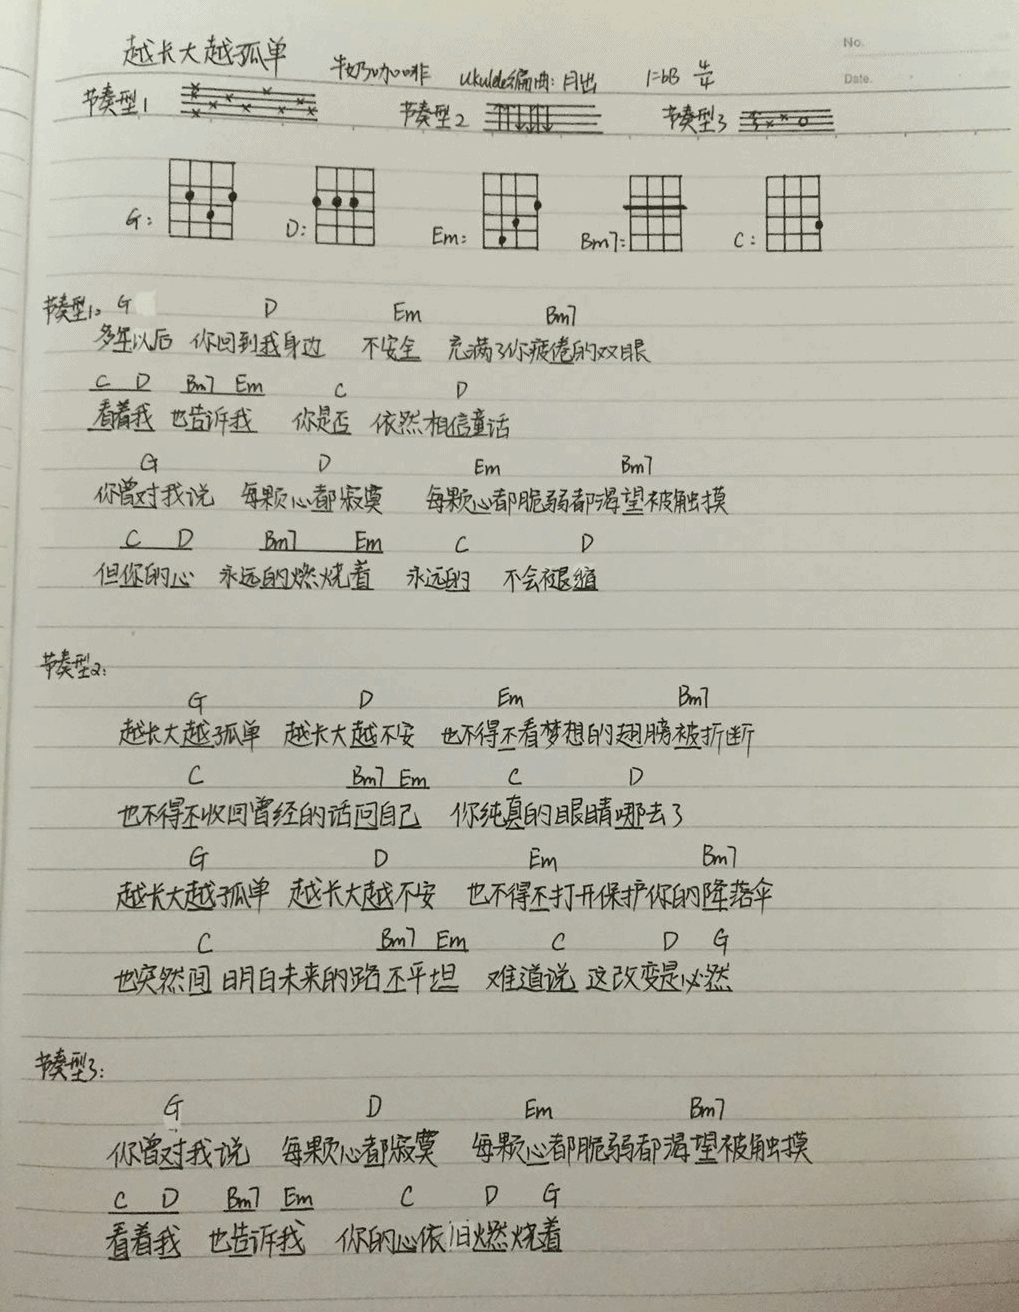 No.
越长大越孤单 牛奶咖啡 ukulele编曲:月出 1=bB 4/4
Date.
节奏型1 节奏型2 节奏型3
G: D: Em: Bm7: C:
节奏型1: G D Em Bm7
多年以后 你回到我身边 不安全 充满了你疲倦的双眼
C D Bm7 Em C D
看着我 也告诉我 你是否 依然相信童话
G D Em Bm7
你曾对我说 每颗心都寂寞 每颗心都脆弱都渴望被触摸
C D Bm7 Em C D
但你的心 永远的燃烧着 永远的 不会褪缩
节奏型2:
G D Em Bm7
越长大越孤单 越长大越不安 也不得不看梦想的翅膀被折断
C Bm7 Em C D
也不得不收回曾经的话问自己 你纯真的眼睛哪去了
G D Em Bm7
越长大越孤单 越长大越不安 也不得不打开保护你的降落伞
C Bm7 Em C D G
也突然间 明白未来的路不平坦 难道说 这改变是必然
节奏型3:
G D Em Bm7
你曾对我说 每颗心都寂寞 每颗心都脆弱都渴望被触摸
C D Bm7 Em C D G
看着我 也告诉我 你的心依旧燃烧着